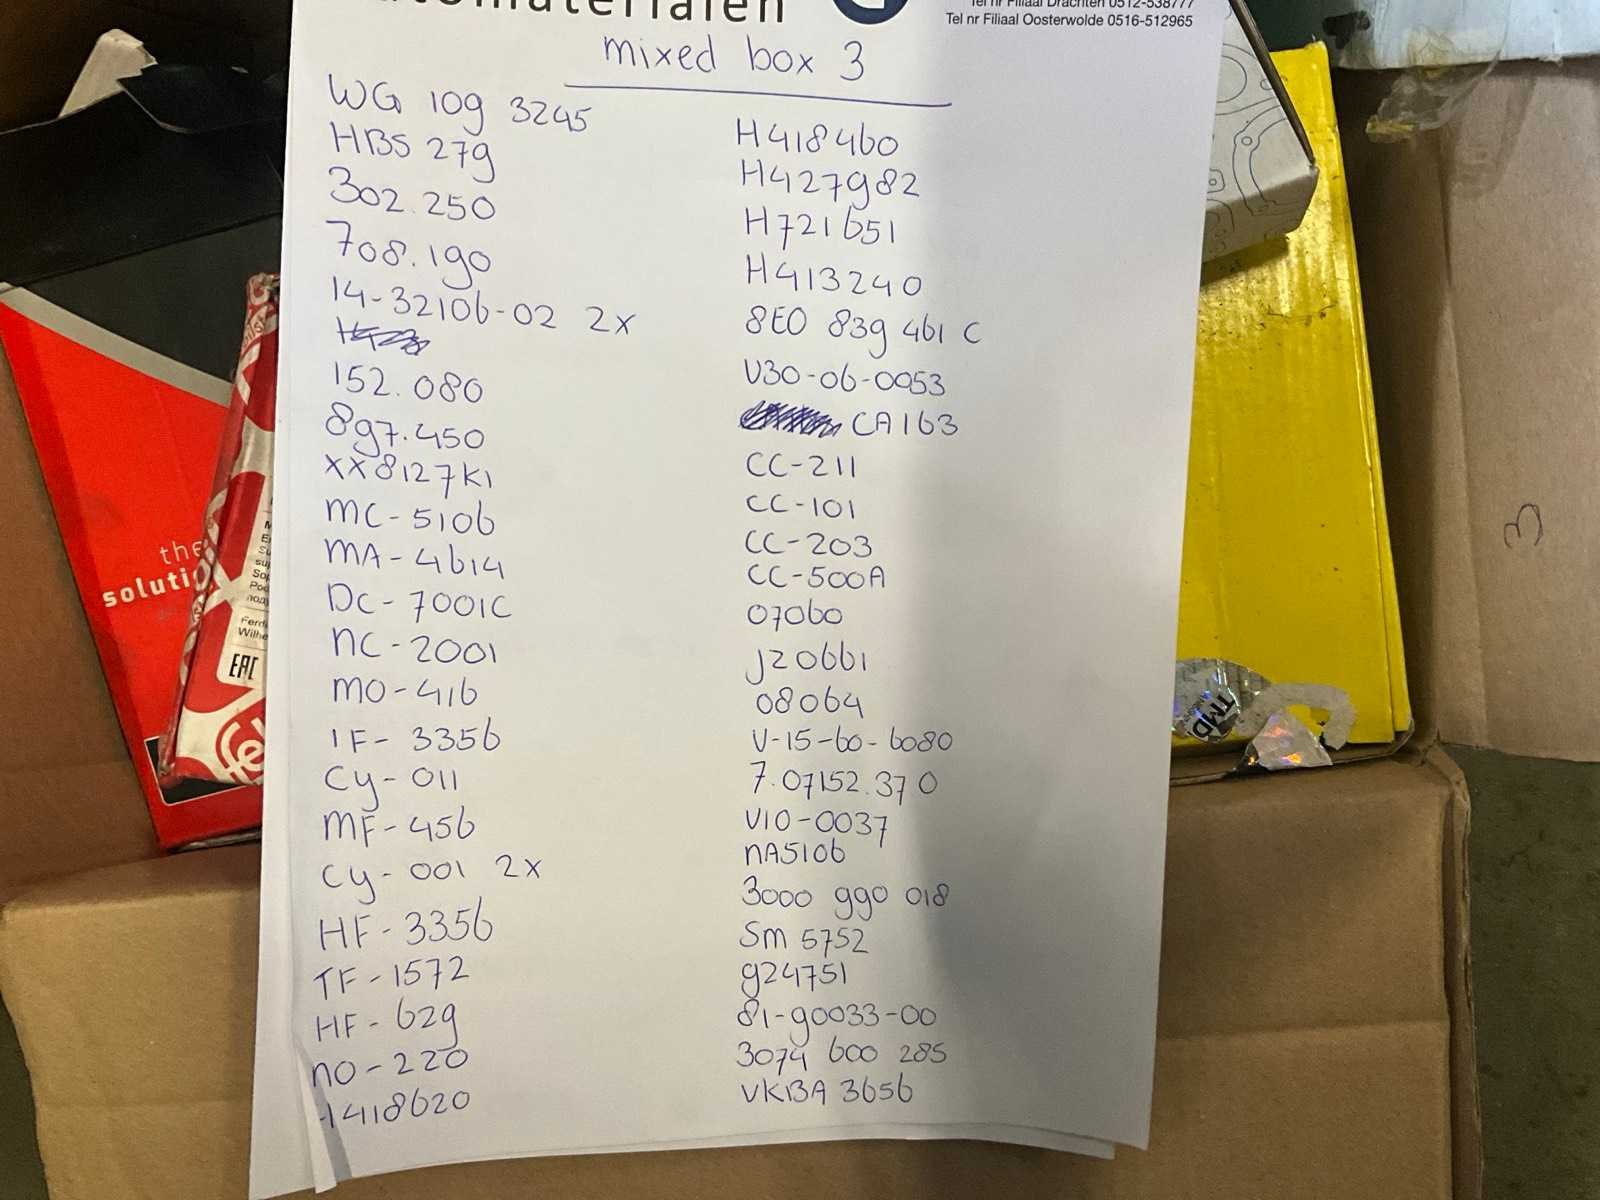 Tel nr Filiaal Drachten 0512-538777
Tel nr Filiaal Oosterwolde 0516-512965
mixed box 3
WG 109 3245
HBS 279
302.250
708.190
14-32106-02 2x
152.080
897.450
XX8127K1
MC-5106
MA-4614
DC-7001C
NC-2001
MO-416
IF-3356
CY-011
MF-456
CY-001 2x
HF-3356
TF-1572
HF-629
NO-220
H418620
H418460
H427982
H721651
H413240
8E0 839 461 C
V30-06-0053
CA163
CC-211
CC-101
CC-203
CC-500A
07060
J20661
08064
V-15-60-6080
7.07152.37 0
V10-0037
NA5106
3000 990 018
SM 5752
924751
81-90033-00
3074 600 285
VKBA 3656
the
solutio
EAC
TMD
3